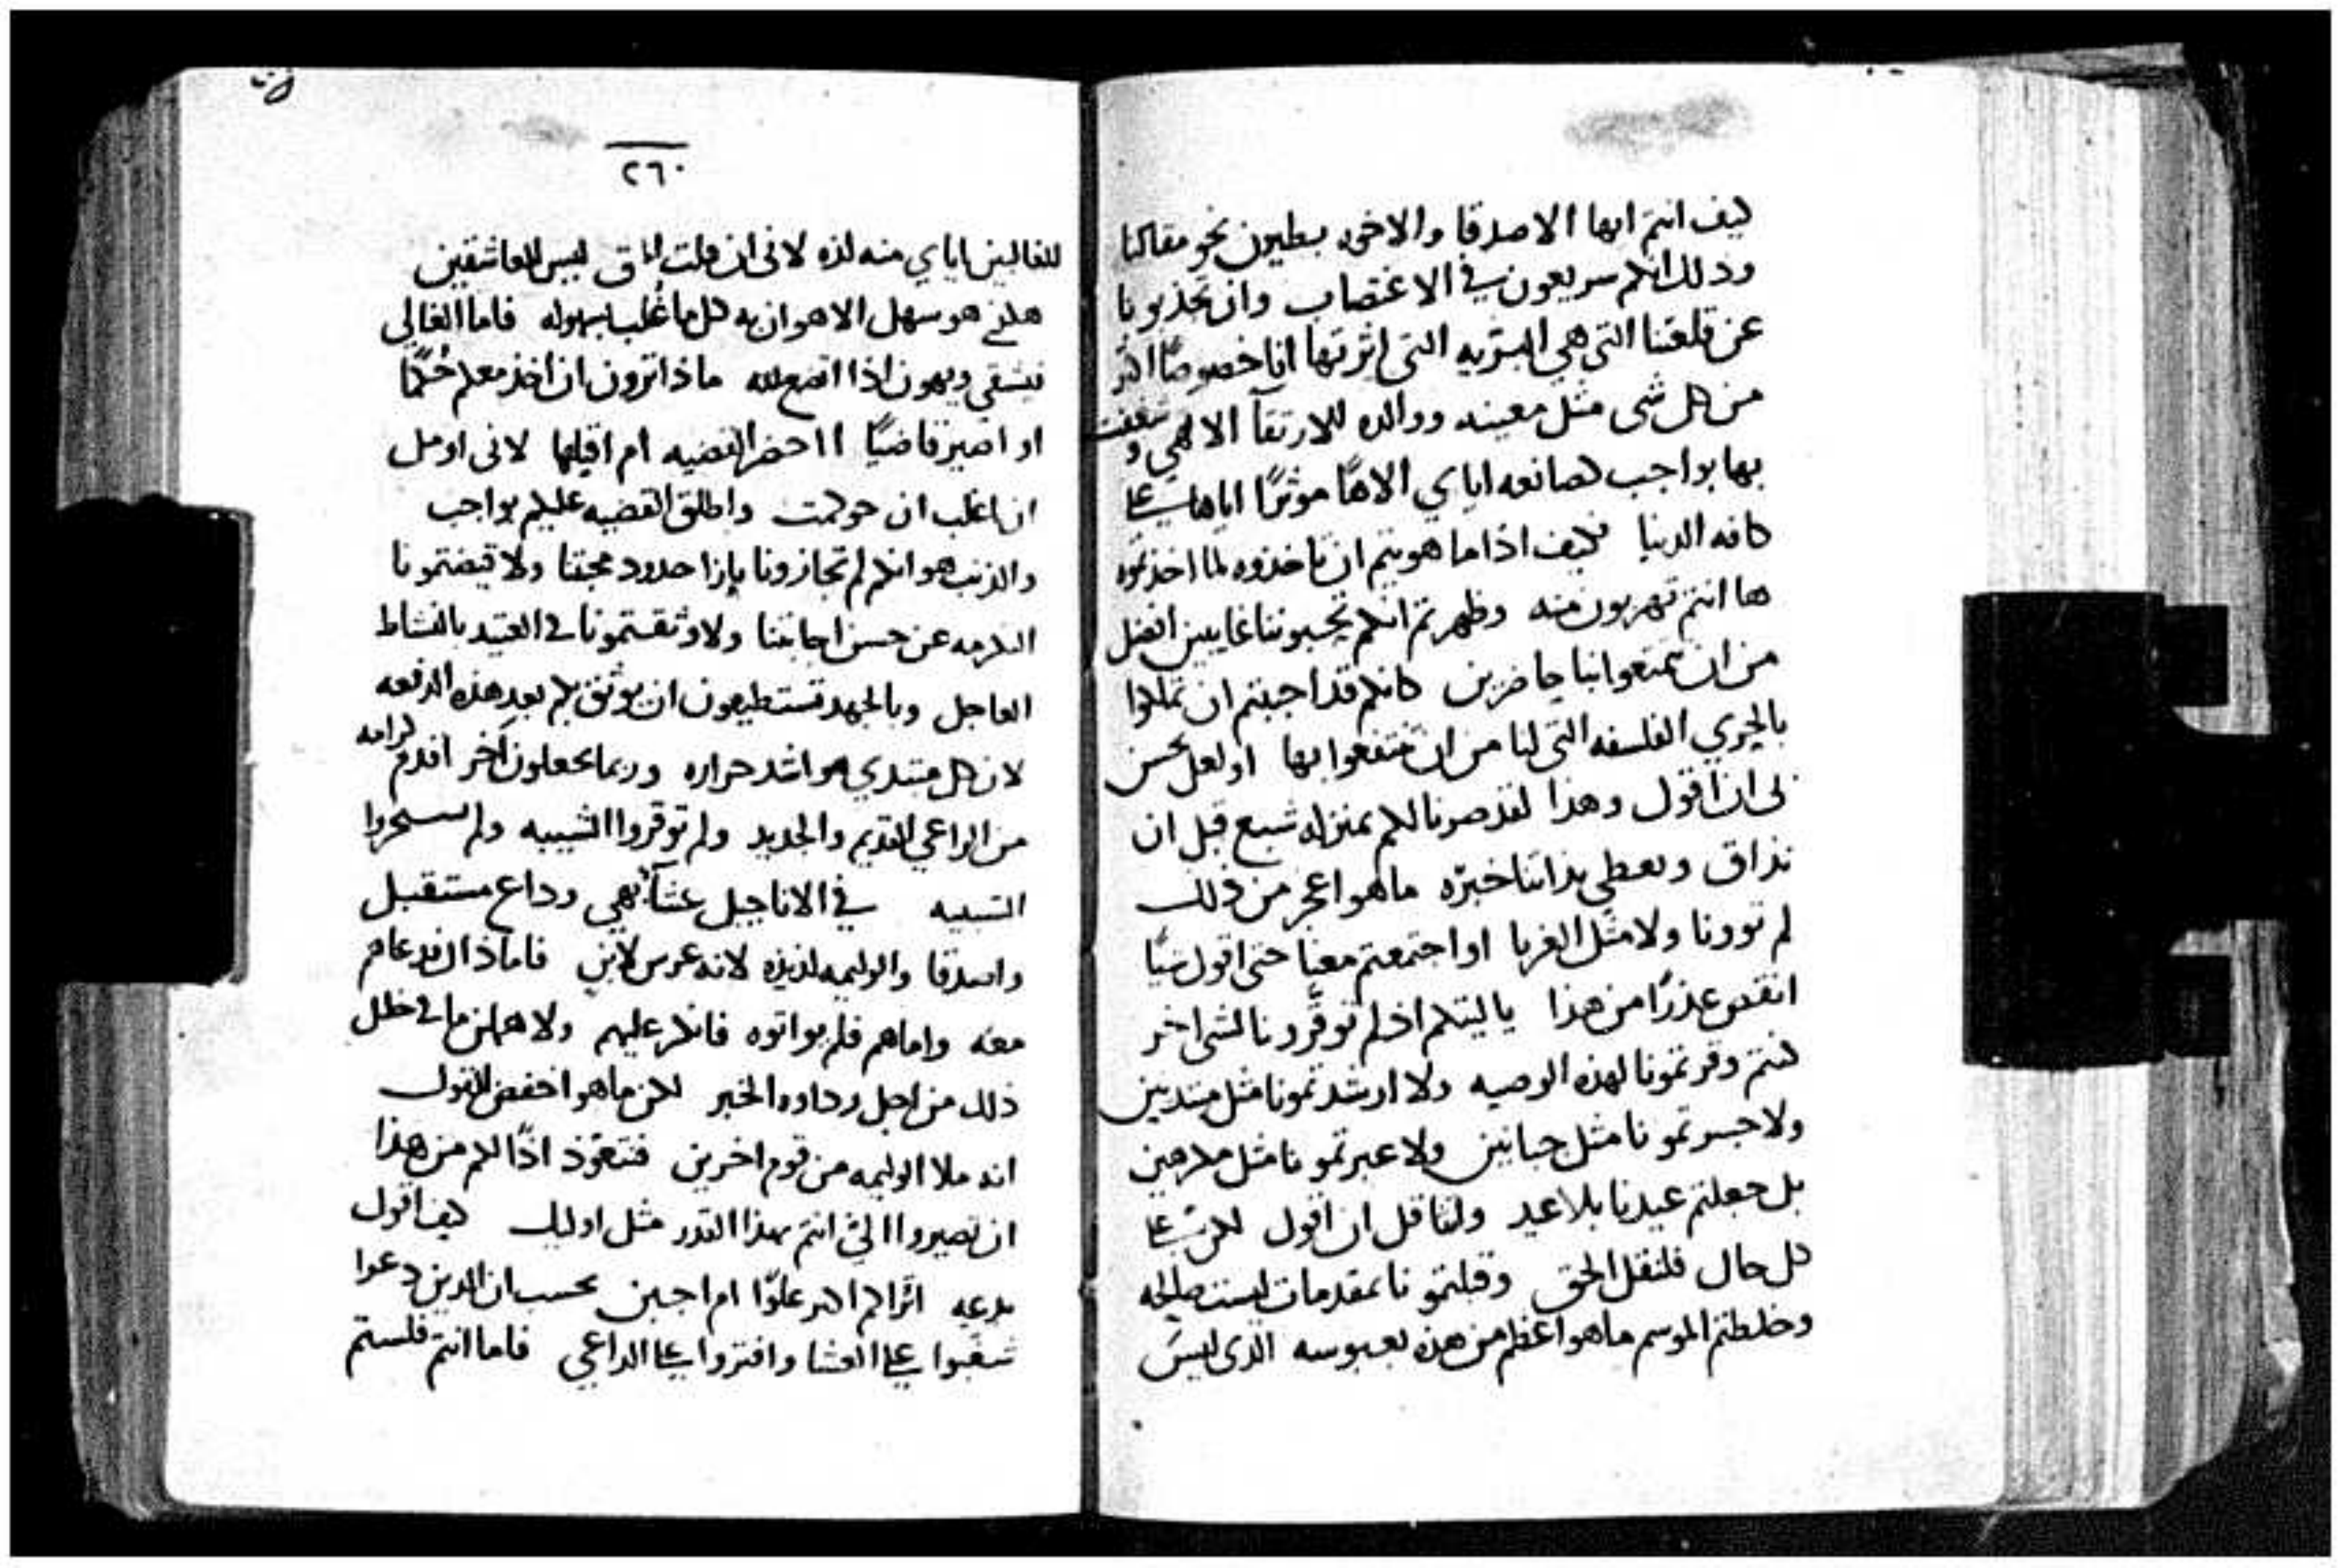 كيف انتم ايها الاصدقا والاخوه بطيون نحو مقالنا
وذلك انكم سريعون في الاغتصاب وان تجذبونا
عن قلعتنا التي هي البريه التي اثرتها انا خصوصًا اكثر
من كل شي مثل معينه ووالده للارتقآ الالهي وشغفت
بها بواجب لصانعه اياي الاهًا موثرًا اياها على
كافه الدنيا فكيف اذا ما هويتم ان تاخذوه لما اخذتموه
ها انتم تهربون منه وظهرتم انكم تحبوننا غايبين افضل
من ان تمتعوا بنا حاضرين كانكم قد احببتم ان تملكوا
بالحري الفلسفه التي لنا من ان تنتفعوا بها او لعل يحسن
لي ان اقول وهذا لقد صرنا لكم بمنزله شبع قبل ان
نذاق ونعطي بذاتنا خبره ما هو اعجز من ذلك
لم توونا ولا مثل الغربا او اجتمعتم معنا حتى اقول شيًا
انقص عذرًا من هذا يا ليتكم اذ لم توقرونا لشي اخر
كنتم وقرتمونا لهذه الوصيه ولا ارشدتمونا مثل مبتديين
ولا جسرتمونا مثل جبانين ولا عبرتمونا مثل
بل جعلتم عيدنا بلا عيد ولنا قل ان اقول لكن على
كل حال فلنقل الحق وقبلتمونا بمقدمات ليست صالحه
وخلطتم الموسم ما هو اعظم من هذه بعبوسه الذي ليس
٢٦٠
للغالبين اياي منه لذه لاني ان قلت لباق ليس للعاشقين
هو سهل الاهوان به كل ما غلب بسهوله فاما الغالي
فيشقي ويهون اذا اتضع لله ماذا ترون ان اخذ معكم حُكمًا
او اصير قاضيًا ااحضر القضيه ام اقبلها لاني اومل
ان اغلب ان حوكمت واطلق القضيه عليكم بواجب
والذنب هو انكم لم تجازونا بازا حدود محبتنا ولا قبضتمونا
الكرمه عن حسن اجابتنا ولا وثقتمونا في العتيد بالنشاط
العاجل وبالجهد تستطيعون ان يوثق بكم بعد هذه الدفعه
لان كل مبتدي هو اشد حراره وربما تجعلون آخر اقدم كرامه
من الراعي القديم والجديد ولم توقروا الشيبه ولم
الشبيبه في الاناجيل عشآ بهي وداع مستقبل
واصدقا والوليمه لذيذه لانه عرس لابن فاما ذاك فدعاهم
معه واما هم فلم يواتوه فانكر عليهم ولا
ذلك من اجل رداوه الخبر لكن ما هو اخفض للقول
انه ملا الوليمه من قوم اخرين فنتعوذ اذًا لكم من هذا
ان تصيروا انتم بهذا القدر مثل اوليك كيف اقول
بدعيه اتراكم اكبر علوًا ام اجبن بحسب ان الذين دعوا
شغبوا على العشا وافتروا على الداعي فاما انتم فلستم